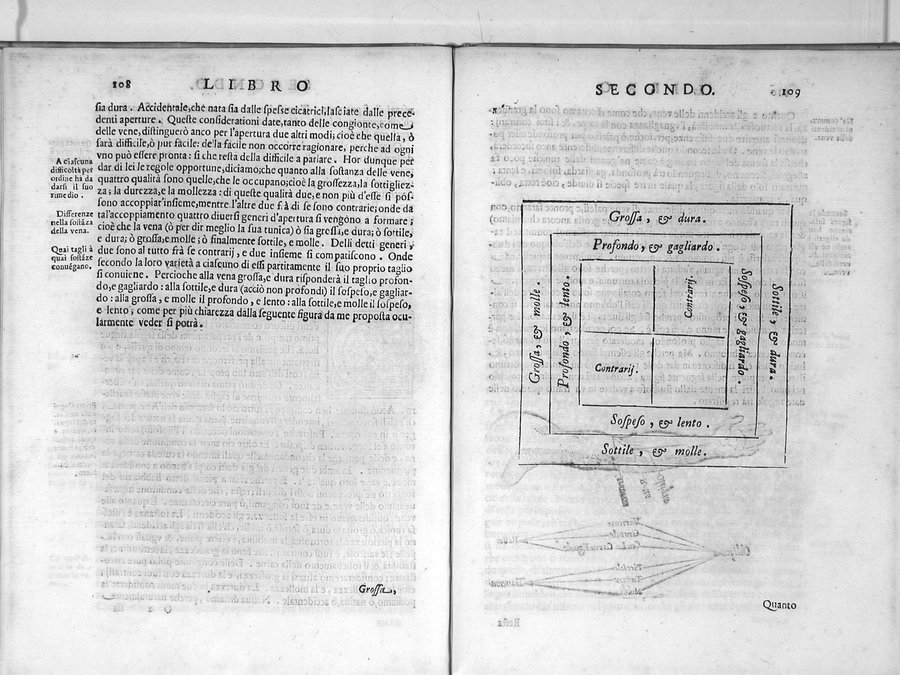 108 LIBRO
sia dura. Accidentale, che nata sia dalle spesse cicatrici, lasciate dalle prece-
denti aperture. Queste considerationi date, tanto delle congionte, come
delle vene, distinguerò anco per l'apertura due altri modi; cioè che quella, ò
sarà difficile, ò pur facile: de la facile non occorre ragionare, perche ad ogni
vno può essere pronta: si che resta della difficile a parlare. Hor dunque per
dar di lei le regole opportune, diciamo, che quanto alla sostanza delle vene,
quattro qualità sono quelle, che le occupano; cioè la grossezza, la sottigliez-
za; la durezza, e la mollezza: di queste qualità due, e non più d'esse si pos-
sono accoppiar'insieme, mentre l'altre due frà di se sono contrarie; onde da
tal'accoppiamento quattro diuersi generi d'apertura si vengono a formare;
cioè che la vena (ò per dir meglio la sua tunica) ò sia grossa, e dura; ò sottile,
e dura; ò grossa, e molle; ò finalmente sottile, e molle. Delli detti generi,
due sono al tutto frà se contrarij, e due insieme si compatiscono. Onde
secondo la loro varietà a ciascuno di essi partitamente il suo proprio taglio
si conuiene. Percioche alla vena grossa, e dura risponderà il taglio profon-
do, e gagliardo: alla sottile, e dura (acciò non profondi) il sospeso, e gagliar-
do: alla grossa, e molle il profondo, e lento: alla sottile, e molle il sospeso,
e lento; come per più chiarezza dalla seguente figura da me proposta ocu-
larmente veder si potrà.
A ciascuna
difficoltà per
ordine hà da
darsi il suo
rimedio.
Differenze
nella sostãza
della vena.
Quai tagli à
quai sostãze
conuẽgano.
Grossa,
SECONDO. 109
Grossa, & dura.
Profondo, & gagliardo.
Grossa, & molle.
Profondo, & lento.
Contrarij.
Contrarij.
Sospeso, & gagliardo.
Sottile, & dura.
Sospeso, & lento.
Sottile, & molle.
Quanto